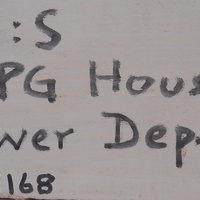 : S
PG Hous
wer Dep
168